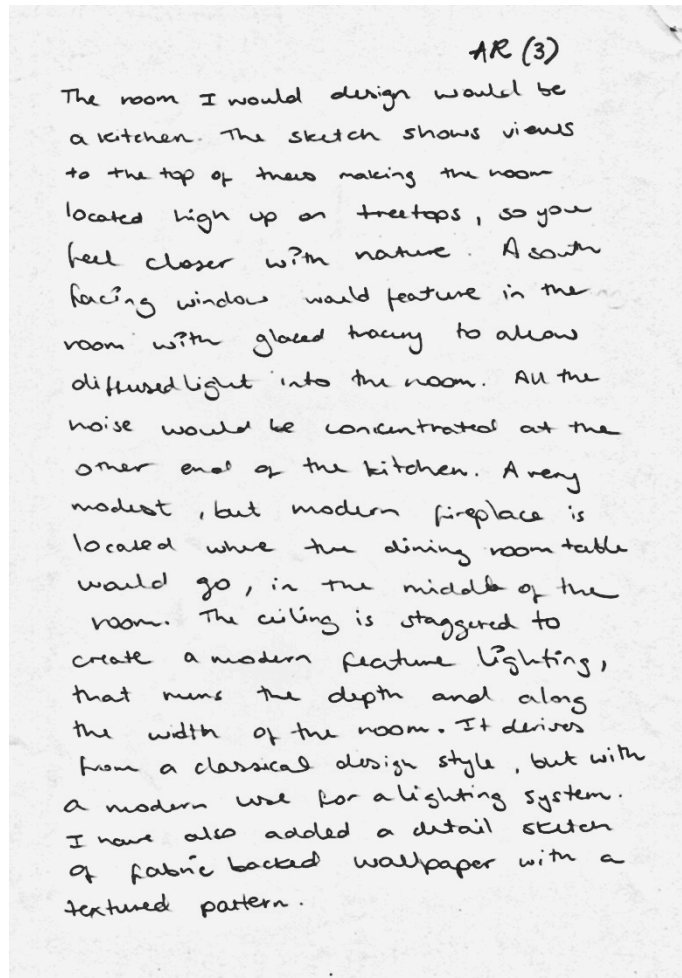 AR (3)
The room I would design would be
a kitchen. The sketch shows views
to the top of trees making the room
located high up on treetops, so you
feel closer with nature. A south
facing window would feature in the
room with glazed tracery to allow
diffused light into the room. All the
noise would be concentrated at the
other end of the kitchen. A very
modest, but modern fireplace is
located where the dining room table
would go, in the middle of the
room. The ceiling is staggered to
create a modern feature lighting,
that runs the depth and along
the width of the room. It derives
from a classical design style, but with
a modern use for a lighting system.
I have also added a detail sketch
of fabric backed wallpaper with a
textured pattern.